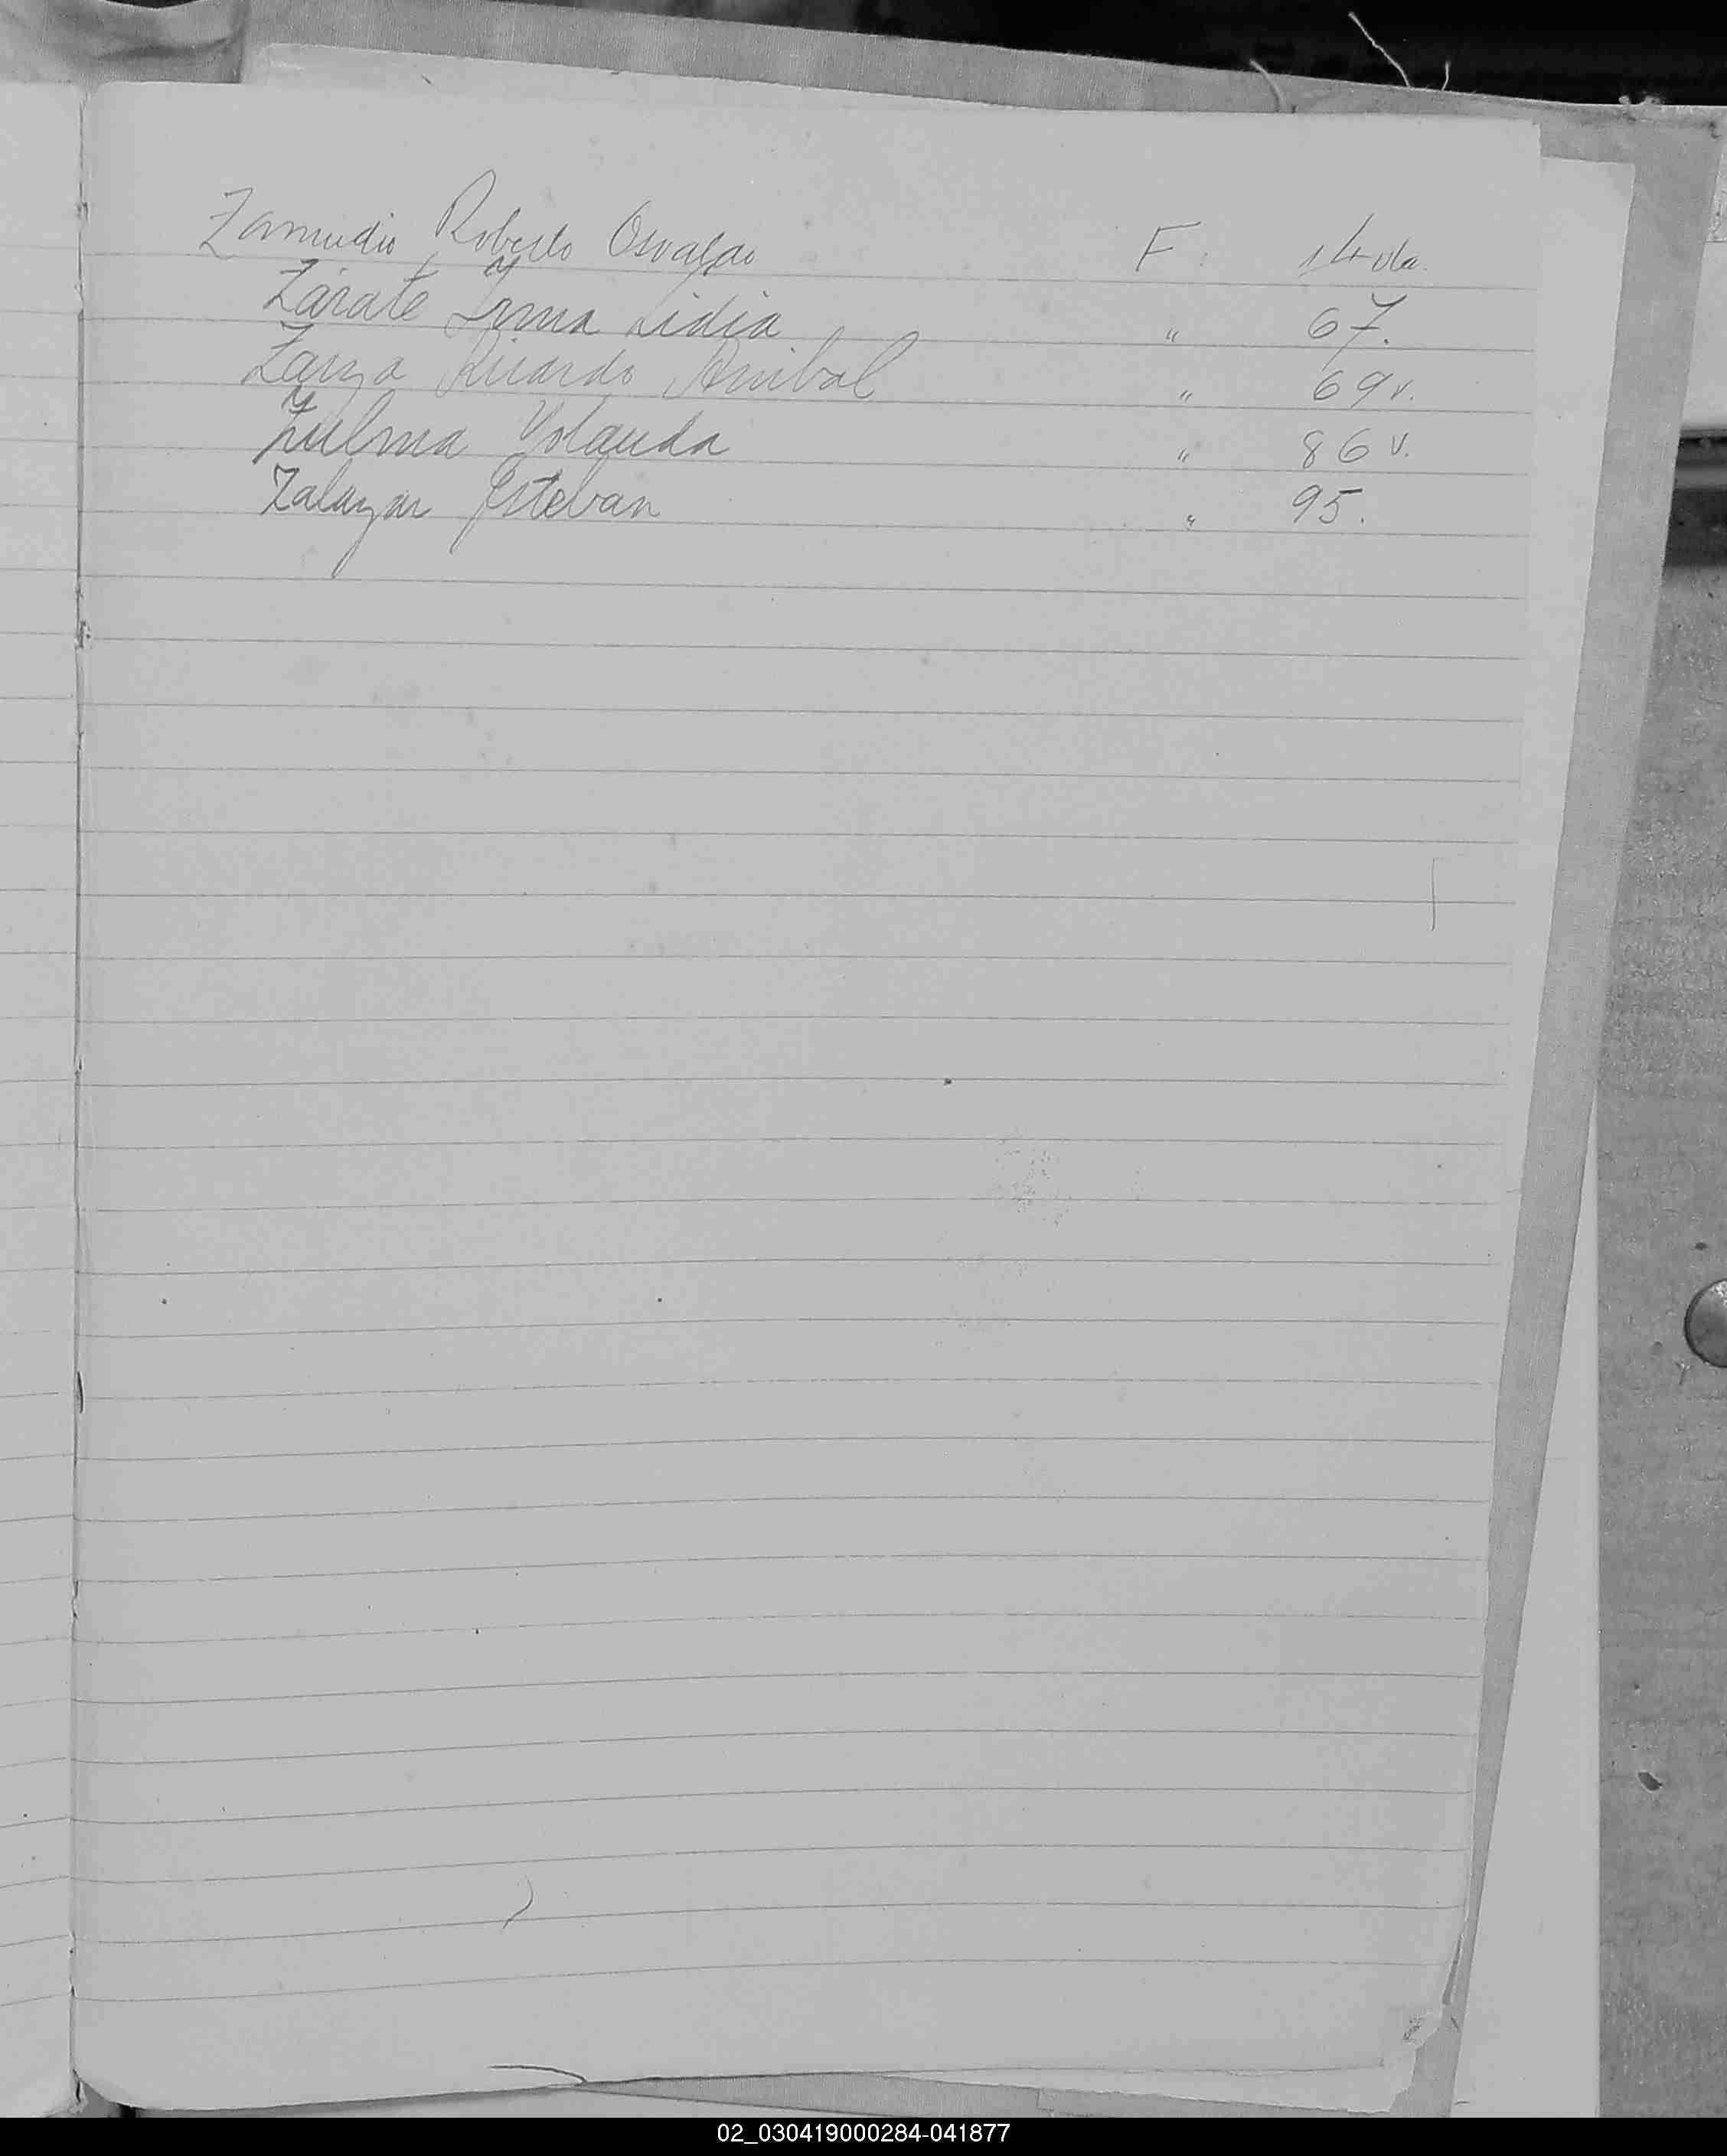 Zamudio Roberto Osvaldo F. 14 vta.
Zárate Irma Lidia " 67.
Zarza Ricardo Anibal " 69 v.
Zulma Yolanda " 86 v.
Zalazar Esteban " 95.
02_030419000284-041877